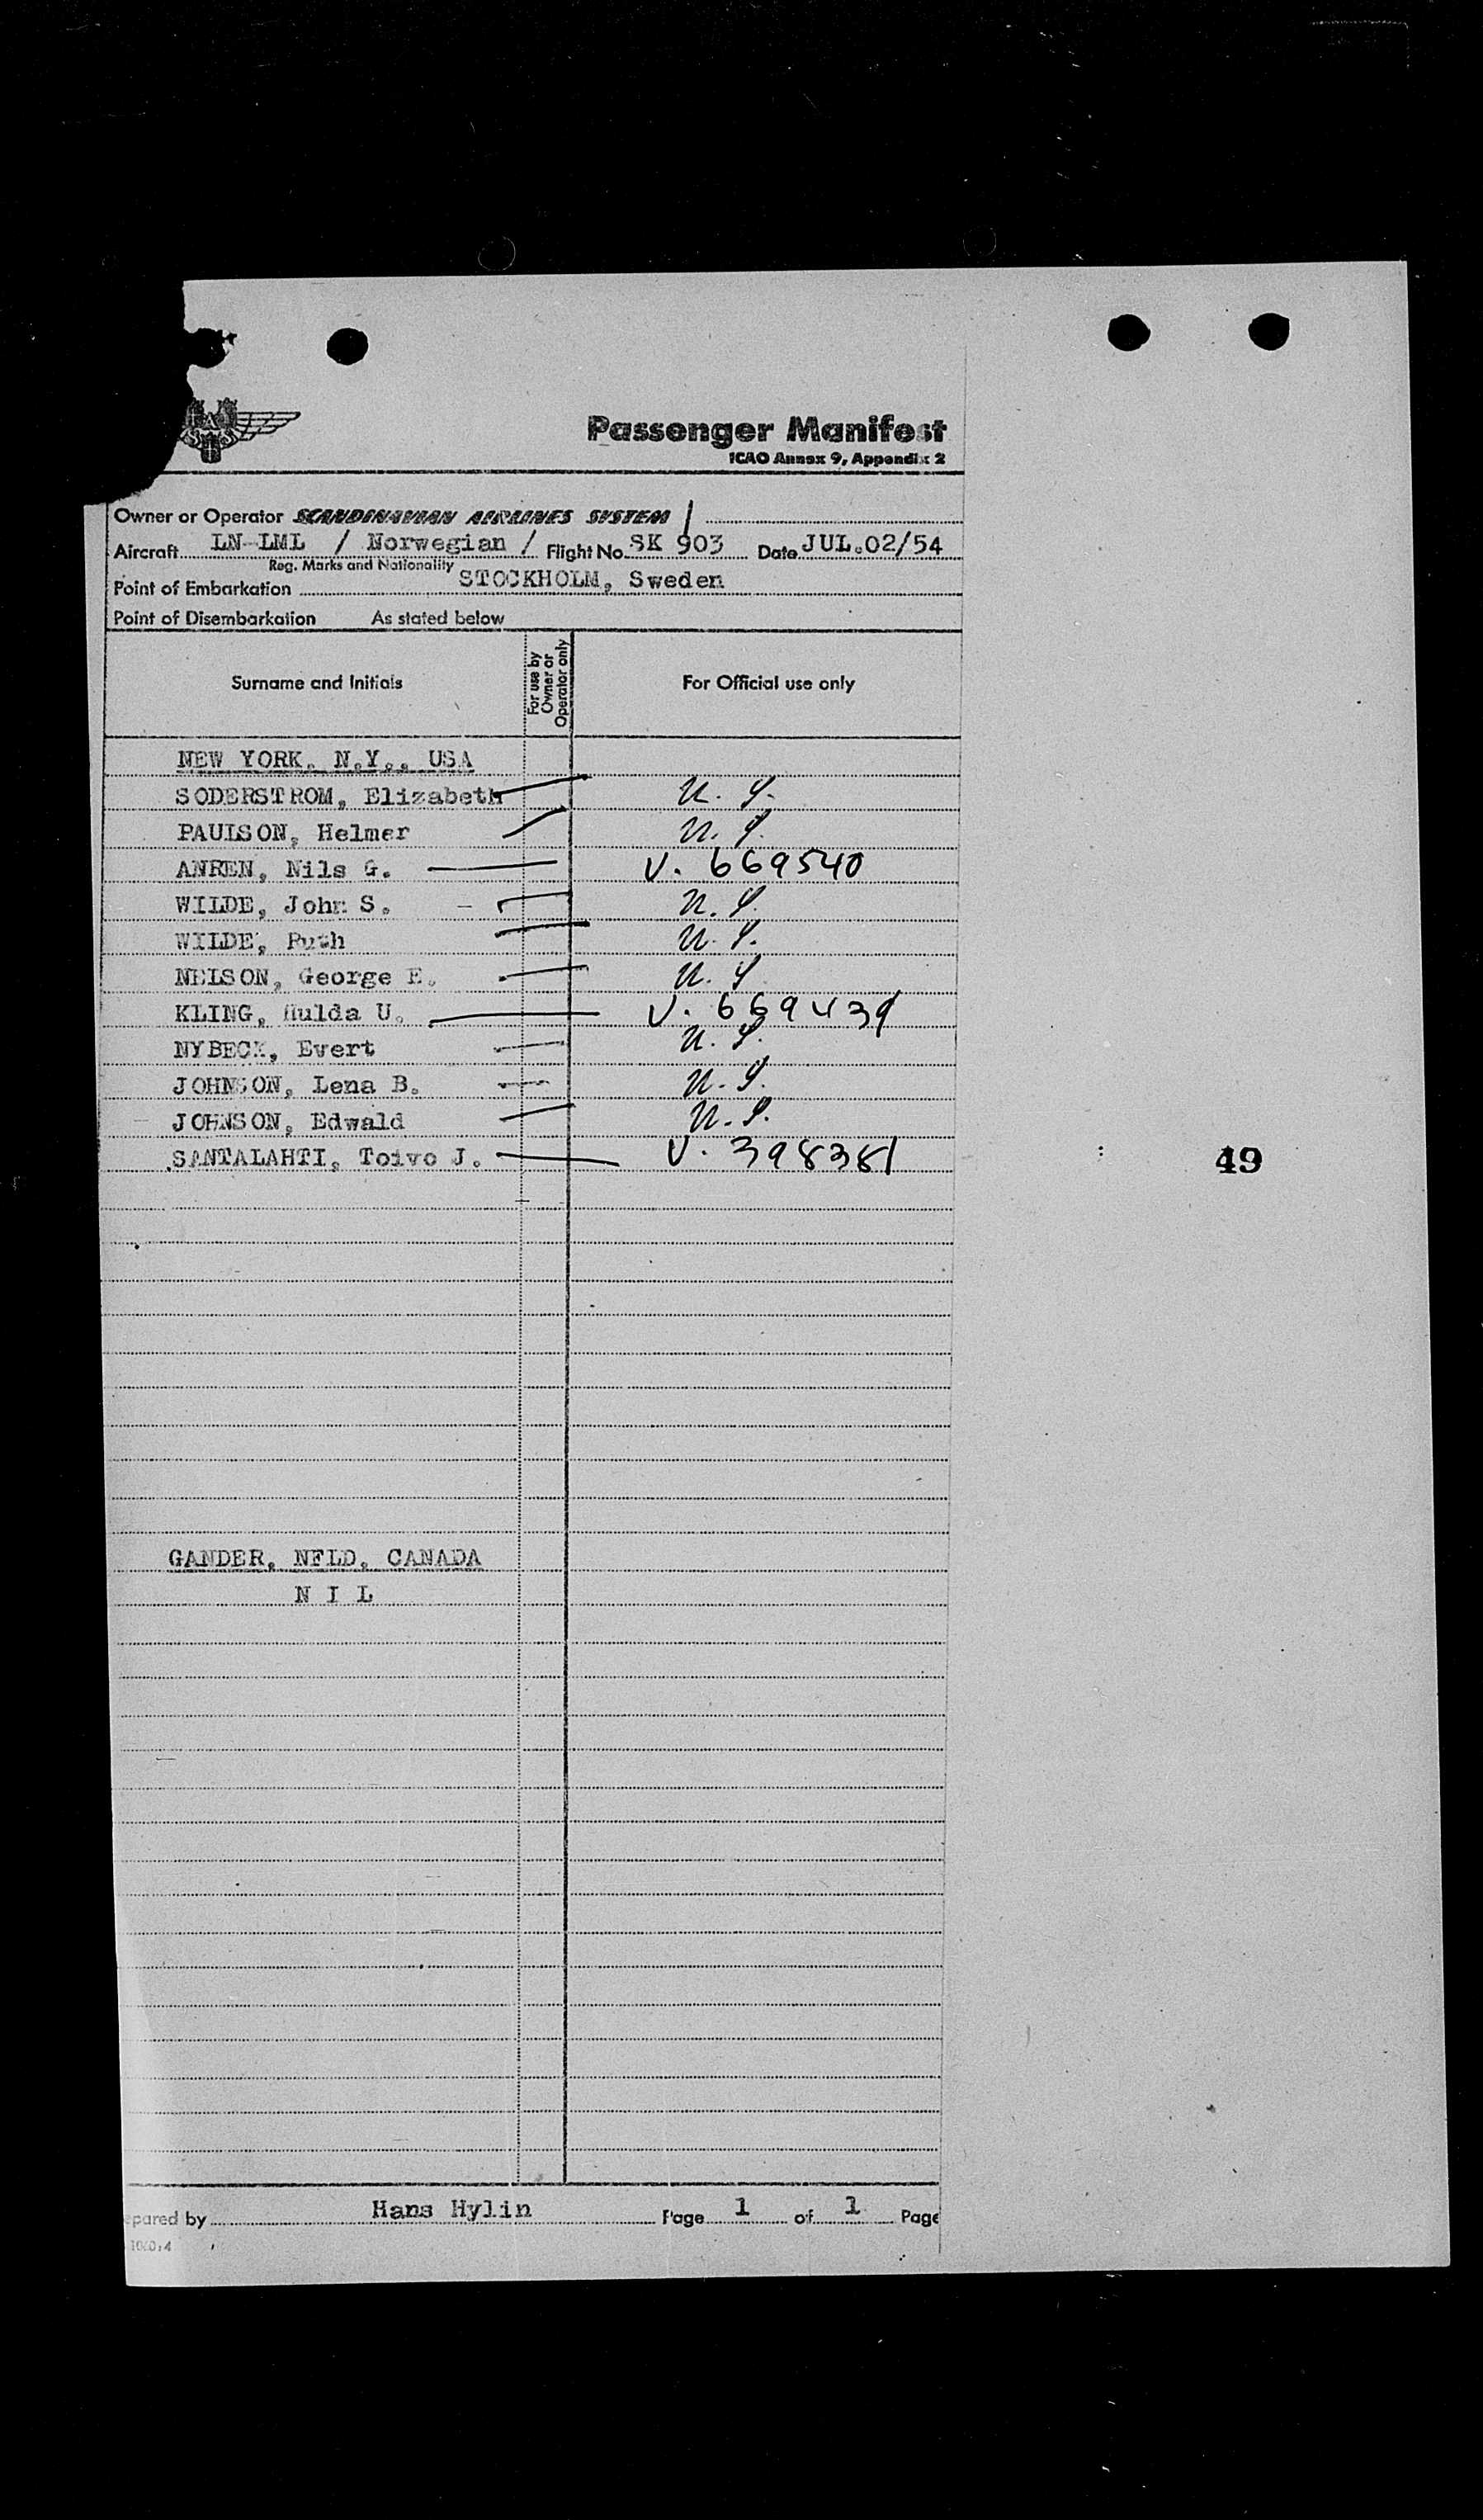 SAS
Passenger Manifest
ICAO Annex 9, Appendix 2
Owner or Operator SCANDINAVIAN AIRLINES SYSTEM /
Aircraft LN-LML / Norwegian / Flight No. SK 903 Date JUL.02/54
Reg. Marks and Nationality
Point of Embarkation STOCKHOLM, Sweden
Point of Disembarkation As stated below
Surname and Initials For use by Owner or Operator only For Official use only
NEW YORK, N.Y., USA
SODERSTROM, Elizabeth U. S.
PAULSON, Helmer U. S.
ANREN, Nils G. V. 669540
WILDE, John S. U. S.
WILDE, Ruth U. S.
NELSON, George E. U. S
KLING, Hulda U. V. 669439
NYBECK, Evert U. S.
JOHNSON, Lena B. U. S.
JOHNSON, Edwald U. S.
SANTALAHTI, Toivo J. V. 398381
49
GANDER, NFLD, CANADA
N I L
epared by Hans Hylin Page 1 of 1 Page